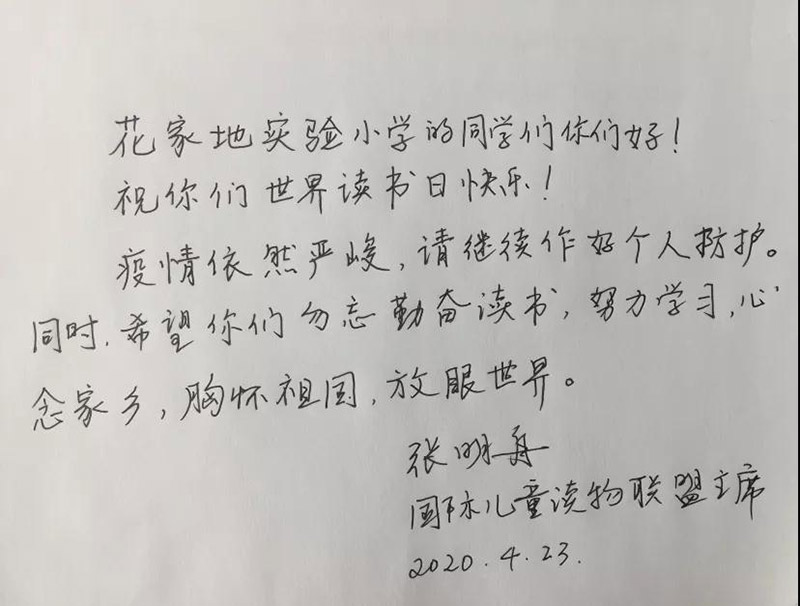 花家地实验小学的同学们你们好！
祝你们世界读书日快乐！
疫情依然严峻，请继续作好个人防护。
同时，希望你们勿忘勤奋读书，努力学习，心
念家乡，胸怀祖国，放眼世界。
张明舟
国际儿童读物联盟主席
2020.4.23.